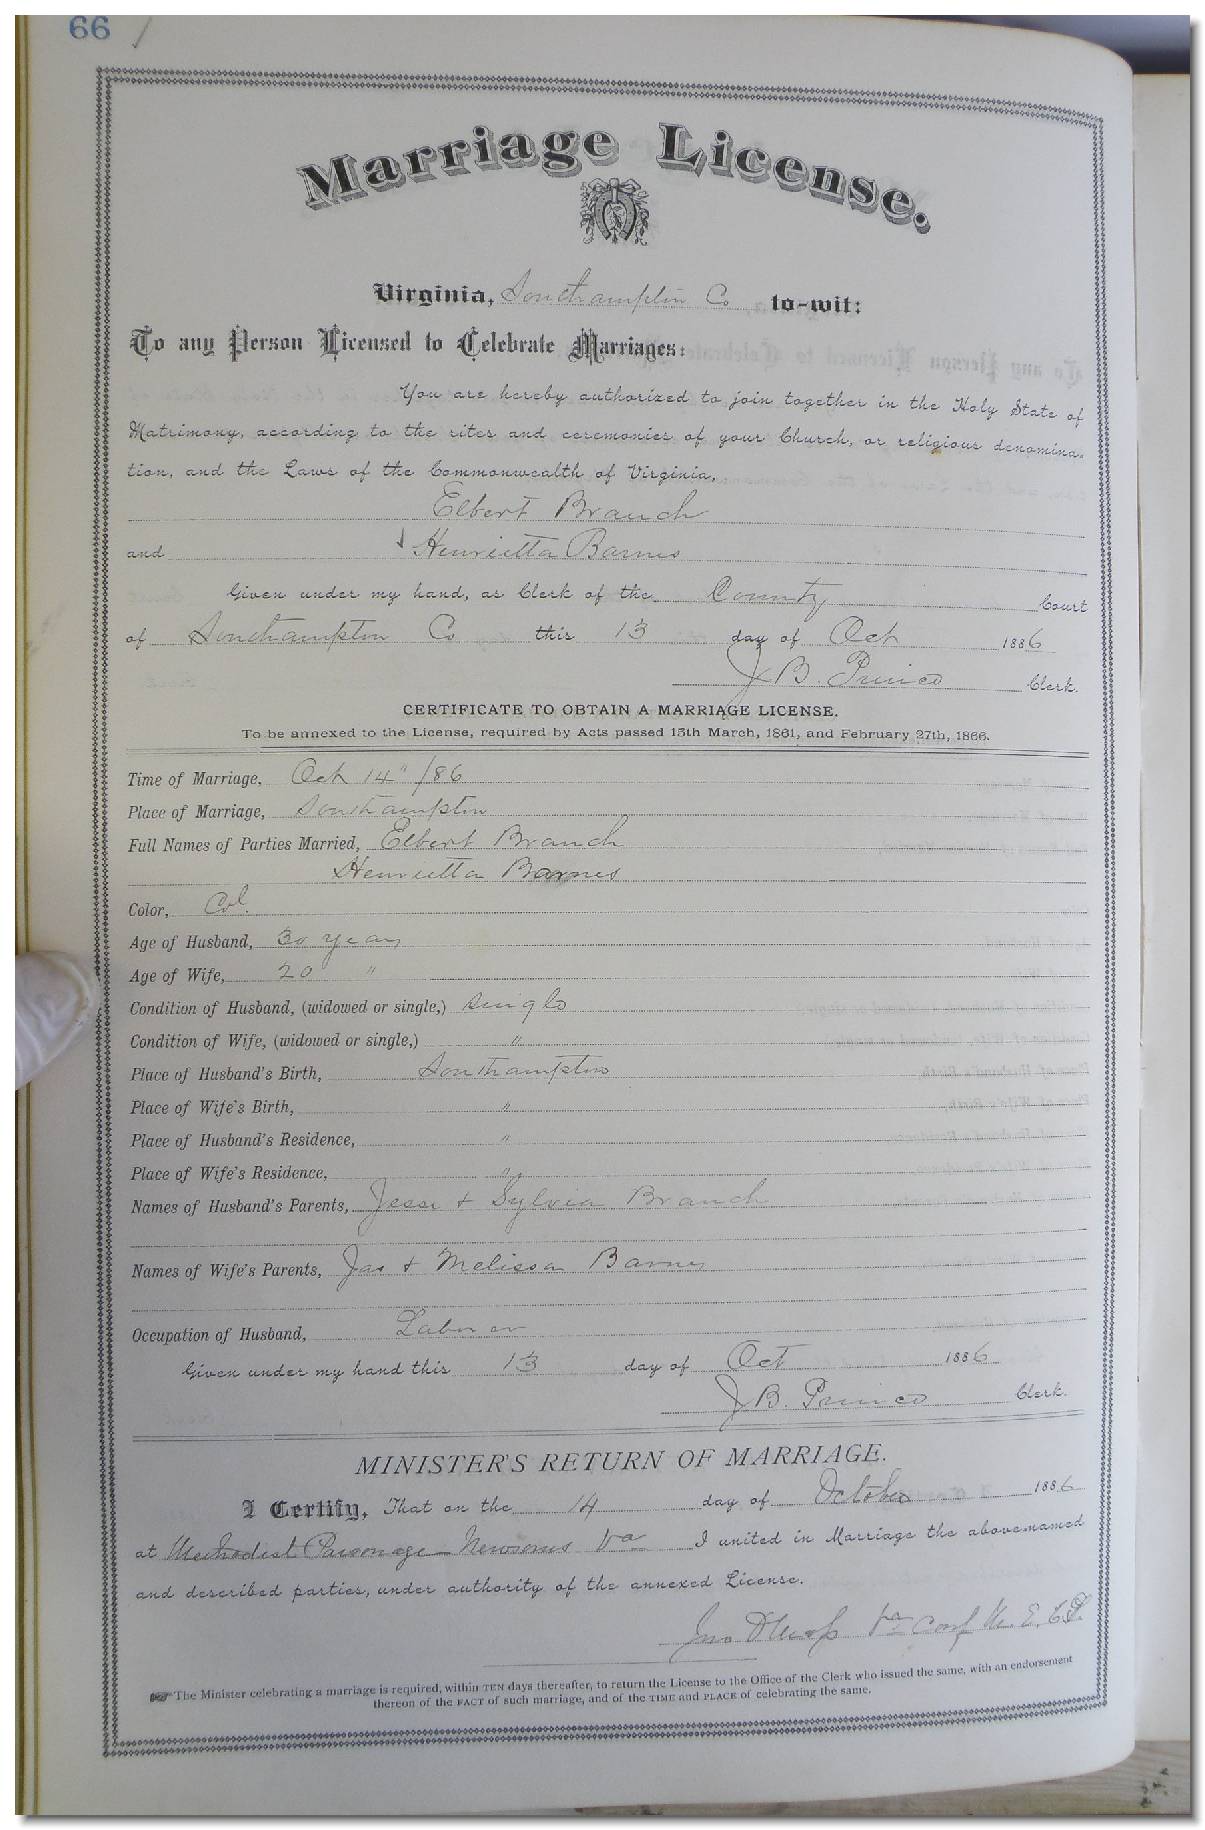 66
Marriage License.
Virginia, Southampton Co to-wit:
To any Person Licensed to Celebrate Marriages:
You are hereby authorized to join together in the Holy State of
Matrimony, according to the rites and ceremonies of your Church, or religious denomina-
tion, and the Laws of the Commonwealth of Virginia,
Elbert Branch
and Henrietta Barnes
Given under my hand, as Clerk of the County Court
of Southampton Co this 13 day of Oct 1886
J. B. Prince Clerk.
CERTIFICATE TO OBTAIN A MARRIAGE LICENSE.
To be annexed to the License, required by Acts passed 15th March, 1861, and February 27th, 1866.
Time of Marriage, Oct 14"/86
Place of Marriage, Southampton
Full Names of Parties Married, Elbert Branch
Henrietta Barnes
Color, Col.
Age of Husband, 30 years
Age of Wife, 20 "
Condition of Husband, (widowed or single,) single
Condition of Wife, (widowed or single,) "
Place of Husband's Birth, Southampton
Place of Wife's Birth, "
Place of Husband's Residence, "
Place of Wife's Residence, "
Names of Husband's Parents, Jesse + Sylvia Branch
Names of Wife's Parents, Jas + Melissa Barnes
Occupation of Husband, Laborer
Given under my hand this 13 day of Oct 1886
J. B. Prince Clerk.
MINISTER'S RETURN OF MARRIAGE.
I Certify, That on the 14 day of October 1886
at Methodist Parsonage Newsoms Va I united in Marriage the above-named
and described parties, under authority of the annexed License.
Jno Va Conf M. E. C. S.
The Minister celebrating a marriage is required, within TEN days thereafter, to return the License to the Office of the Clerk who issued the same, with an endorsement
thereon of the FACT of such marriage, and of the TIME and PLACE of celebrating the same.